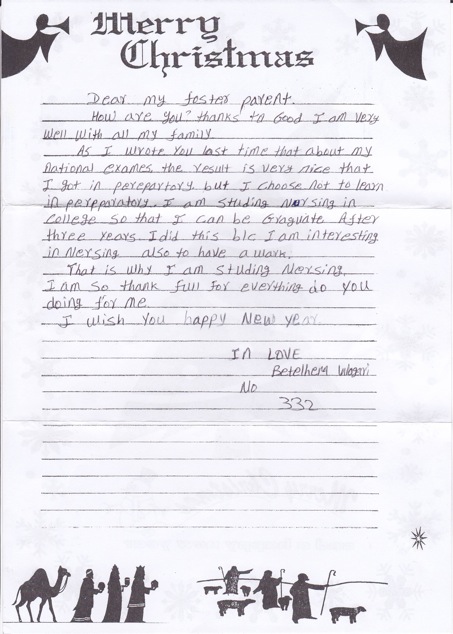 Merry
Christmas
Dear my foster parent.
How are you? thanks to God I am very
well with all my family
As I wrote you last time that about my
national exames the result is very nice that
I got in perepartory but I choose not to learn
in perpparatory. I am studing Nursing in
college so that I can be Graguate After
three years. I did this b/c I am interesting
in Nersing also to have a wark.
That is why I am studing Nersing.
I am so thank full for everything do you
doing for me.
I wish you happy New year.
IN LOVE
Betelhem
No
332